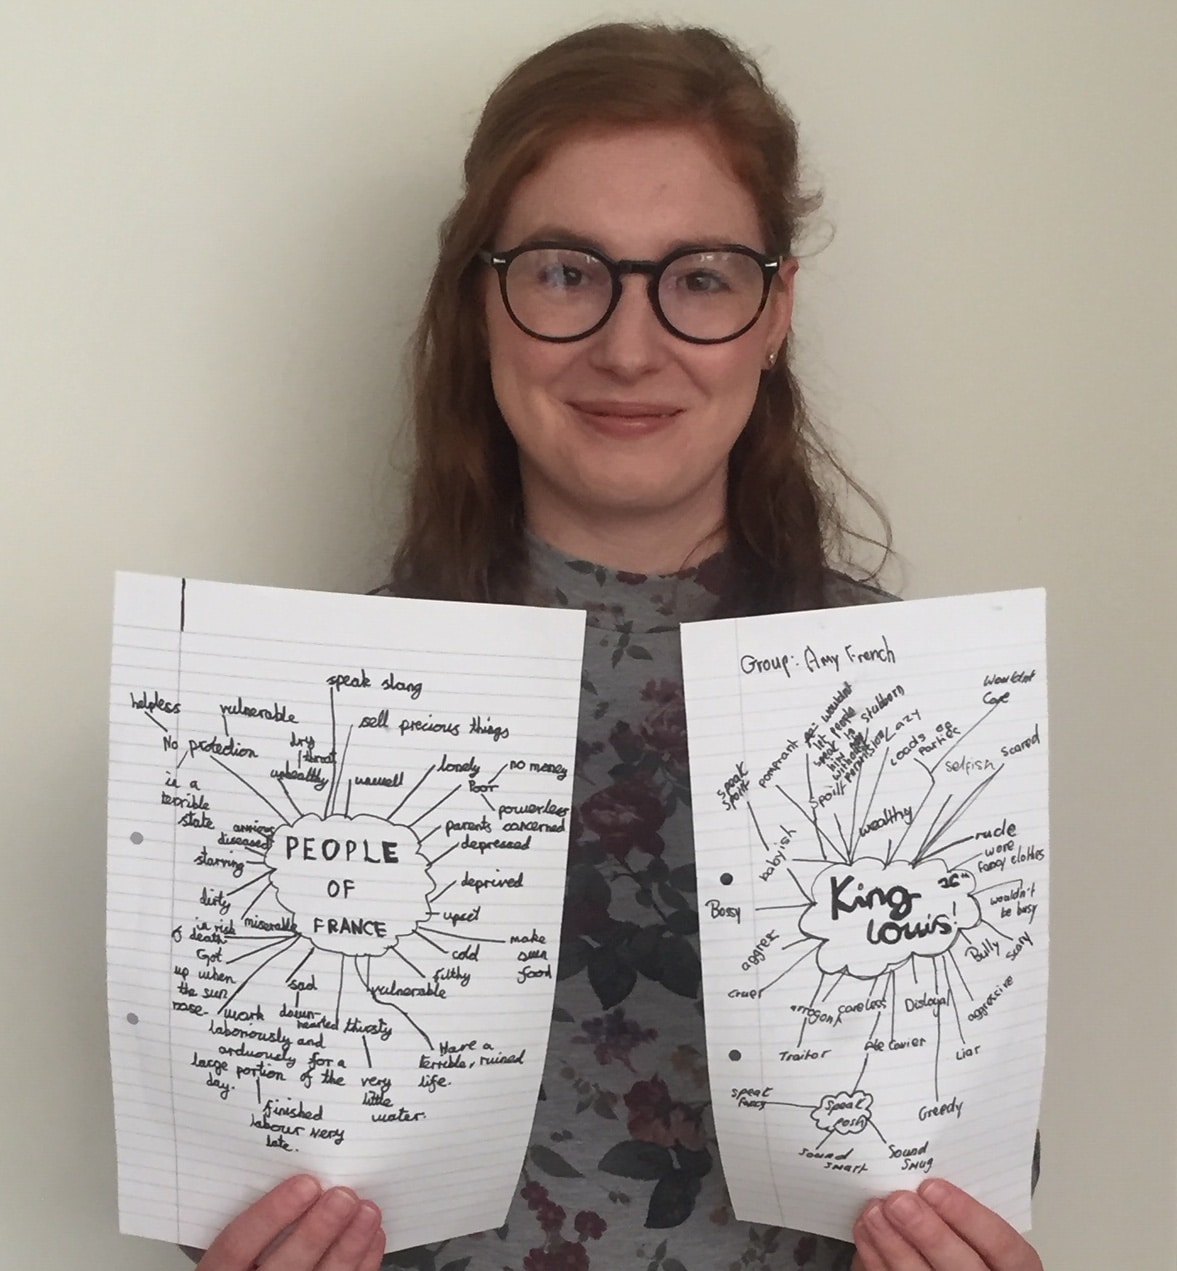 speak slang
helpless
vulnerable
sell precious things
No protection
dry
throat
unhealthy
unwell
lonely
no money
Poor
powerless
is a
terrible
state
anxious
diseased
parents concerned
depressed
starving
PEOPLE
OF
FRANCE
deprived
dirty
upset
in risk
of death
miserable
cold
make
own
food
Got
up when
the sun
rose.
filthy
sad
down-
hearted
vulnerable
thirsty
work
laboriously and
arduously for a
large portion of the
day.
very
little
water.
Have a
terrible, ruined
life.
finished
labour very
late.
Group: Amy French
wouldn't
care
wouldn't
let people
speak to
him
without
permission
stubborn
Lazy
Loads of
parties
selfish
scared
speak
spoilt
wealthy
babyish
rude
wore
fancy clothes
King
Louis!
16th
wouldn't
be busy
Bossy
Bully
scary
cruel
careless
Disloyal
aggressive
Traitor
Ate cavier
Liar
Greedy
speak
Speak
Posh
Sound
smart
Sound
Smug